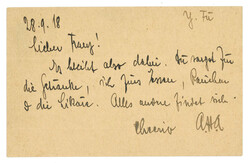 28.9.18
Lieber Franz!
Es bleibt also dabei. Du sorgst für
die Getränke, ich fürs Essen,
& die Liköre. Alles andere findet sich.
Cheerio